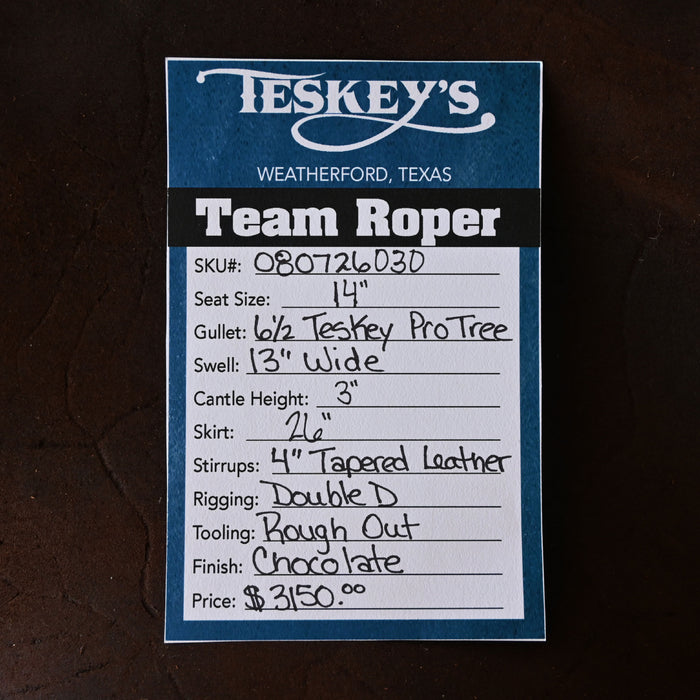 TESKEY'S
WEATHERFORD, TEXAS
Team Roper
SKU#: 080726030
Seat Size: 14"
Gullet: 6½ Teskey Pro Tree
Swell: 13" Wide
Cantle Height: 3"
Skirt: 26"
Stirrups: 4" Tapered Leather
Rigging: Double D
Tooling: Rough Out
Finish: Chocolate
Price: $3150.00